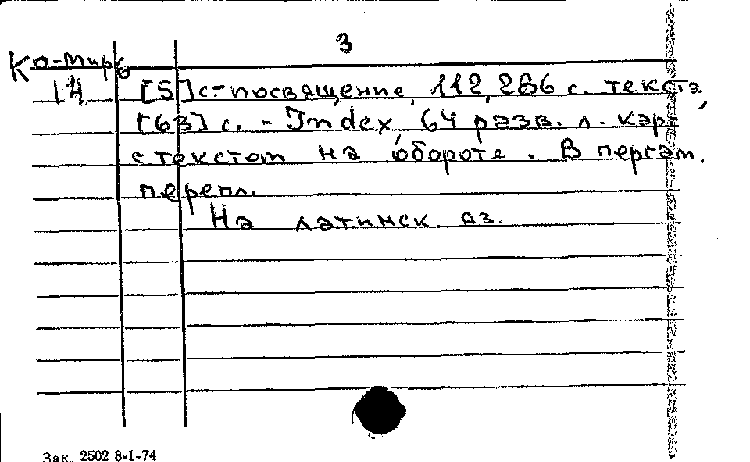 3
Ко-Мирб
14 [5] с-посвящение, 112, 286 с. текста,
[63] с. - Index, 64 разв. л. карт
с текстом на обороте. В пергам.
перепл.
На латинск яз.
Зак. 2502 8-I-74